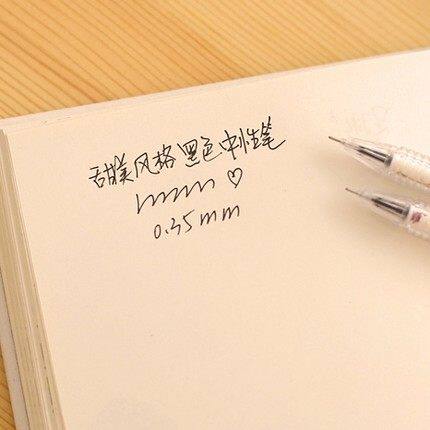 甜美风格黑色中性笔
0.35mm